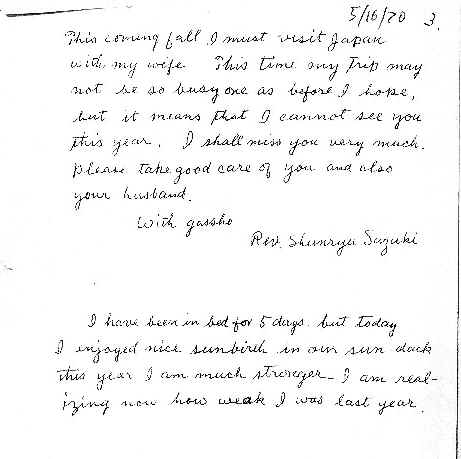 5/16/70 3.
This coming fall I must visit Japan
with my wife. This time my trip may
not be so busy one as before I hope,
but it means that I cannot see you
this year. I shall miss you very much.
Please take good care of you and also
your husband.
With gassho
Rev. Shunryu Suzuki
I have been in bed for 5 days. but today
I enjoyed nice sunbirth in our sun dack
this year I am much stronger - I am real-
izing now how weak I was last year.